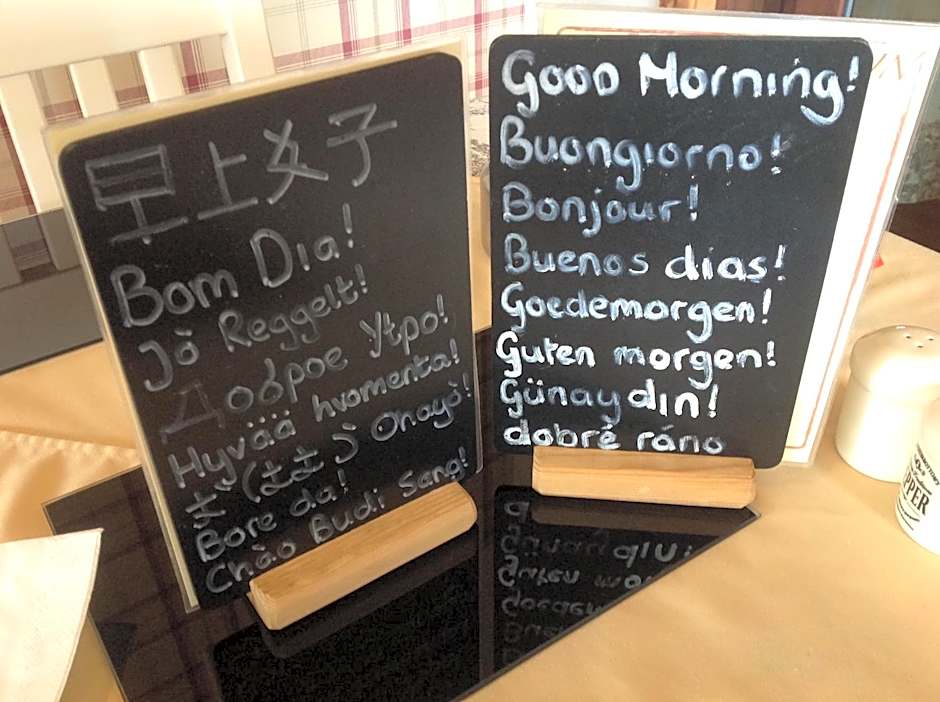 早上女子
Bom Dia!
Jò Reggelt!
Доброе Утро!
Hyvää hvomenta!
Ohayò!
Bore da!
Chào Budi Sang!
Good Morning!
Buongiorno!
Bonjour!
Buenos días!
Goedemorgen!
Guten morgen!
Günaydin!
dobrè ráno